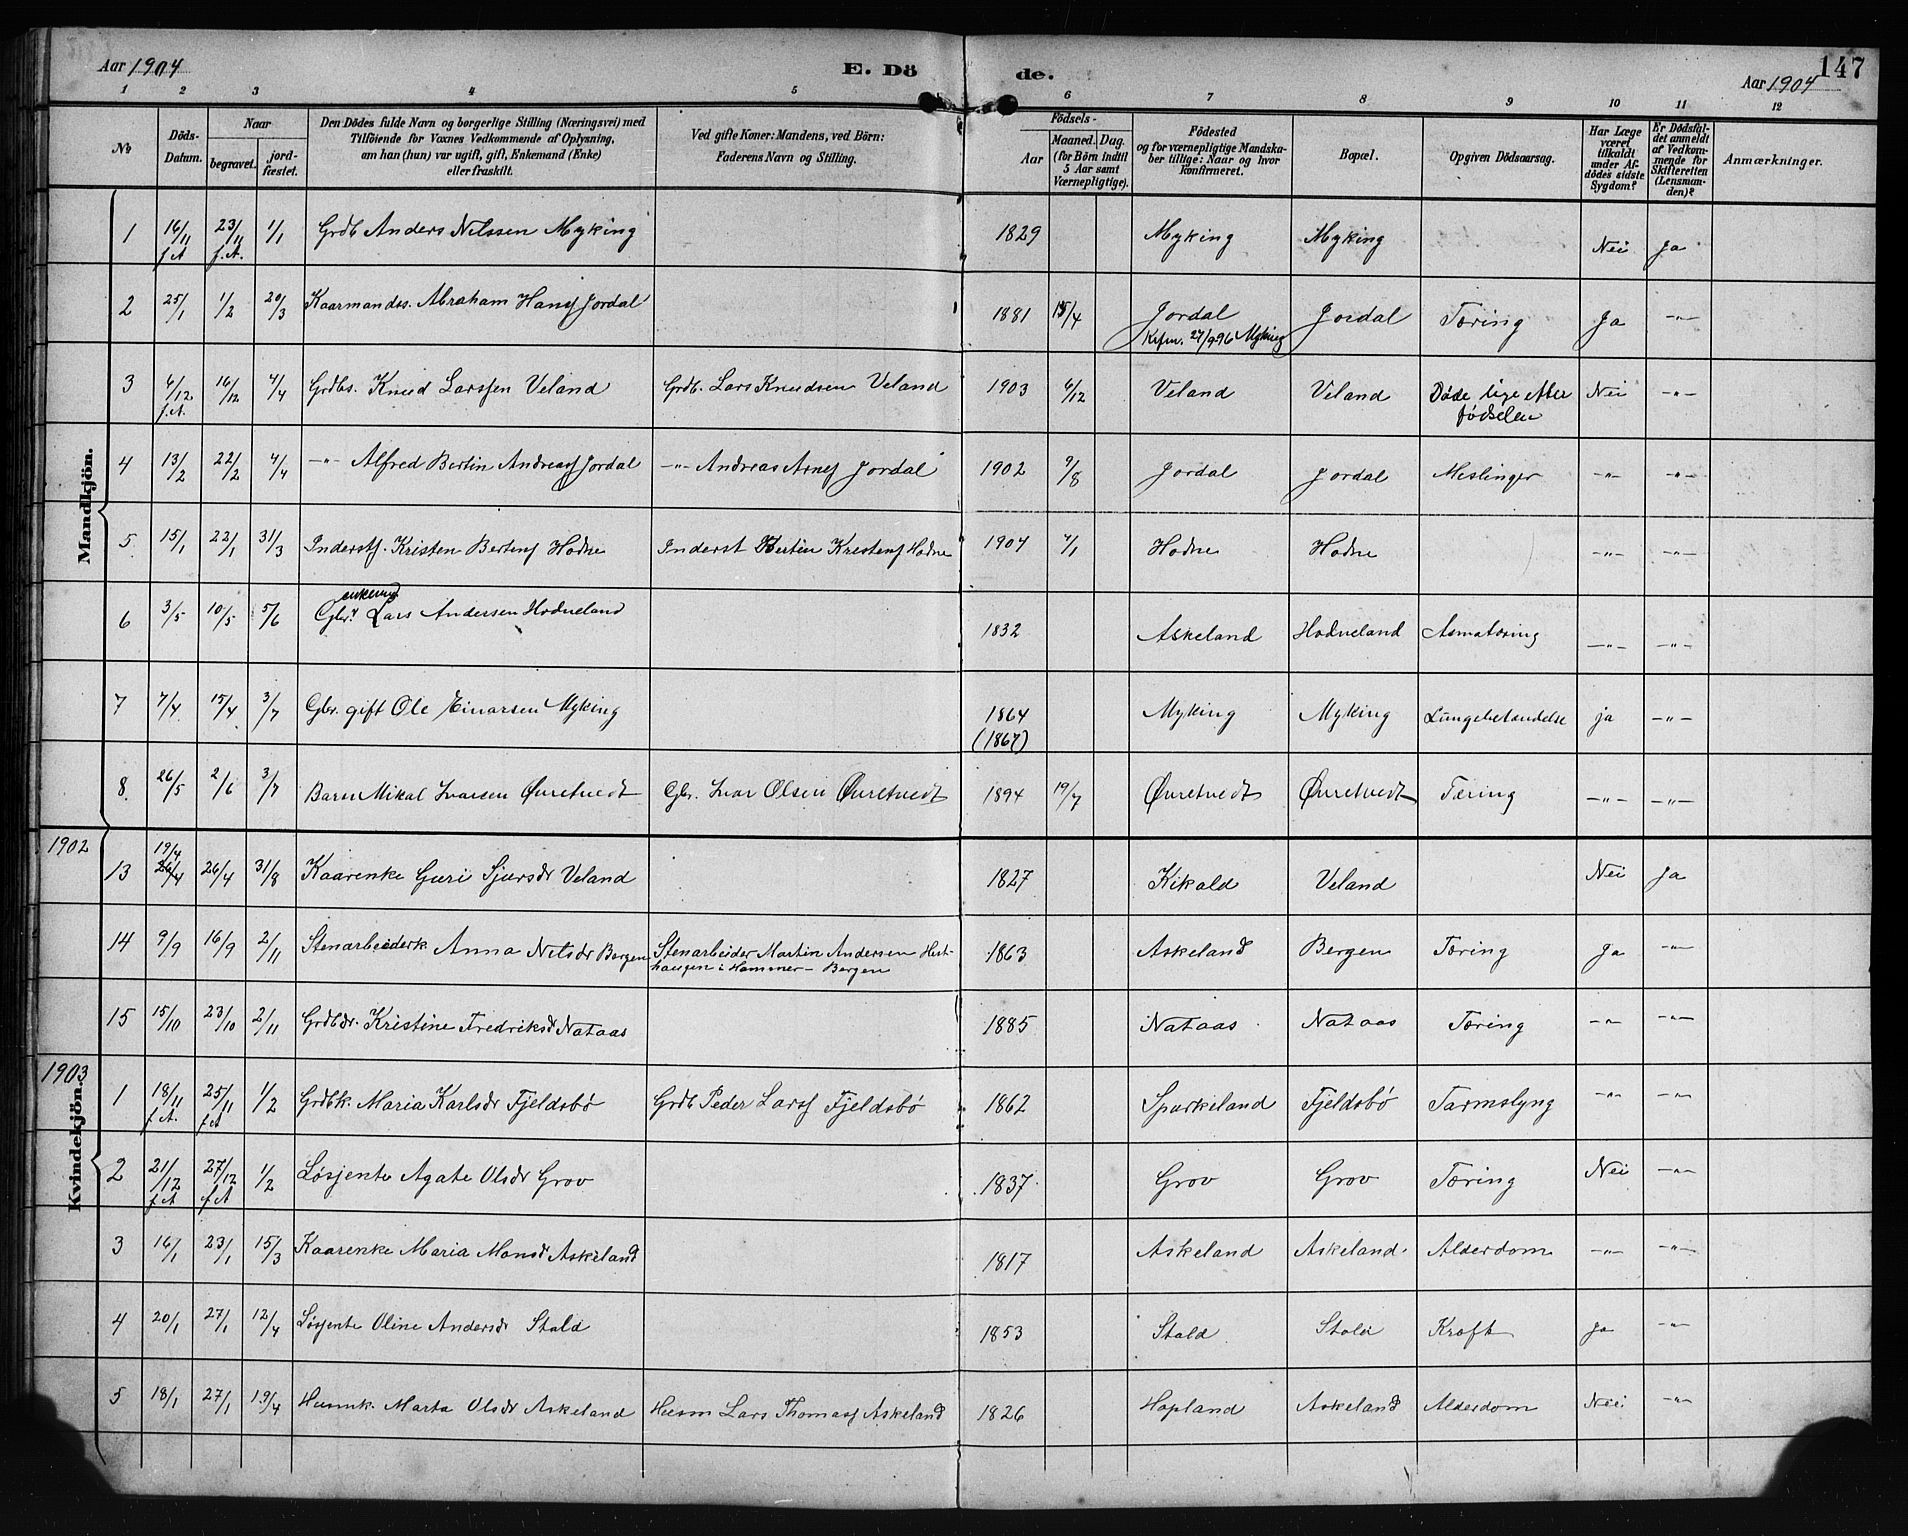 Aar 1904
E. Dö
de.
147
Aar 1904
1 2 3 4 5 6 7 8 9 10 11 12
No
Döds-Datum.
Naar
begravet.
jord-fæstet.
Den Dödes fulde Navn og borgerlige Stilling (Næringsvei) med
Tilföiende for Voxnes Vedkommende af Oplysning,
om han (hun) var ugift, gift, Enkemand (Enke)
eller fraskilt.
Ved gifte Koner: Mandens, ved Börn:
Faderens Navn og Stilling.
Födsels-
Aar
Maaned. Dag.
(for Börn indtil
5 Aar samt
Værnepligtige).
Födested
og for værnepligtige Mandska-
ber tillige: Naar og hvor
konfirmeret.
Bopæl.
Opgiven Dödsaarsag.
Har Læge
været
tilkaldt
under Af-
dödes sidste
Sygdom?
Er Dödsfal-
det anmeldt
af Vedkom-
mende for
Skifteretten
(Lensman-
den)?
Anmærkninger.
Mandkjön.
1 16/11 f.A 23/11 f.A. 1/1 Grdb Anders Nilssen Myking 1829 Myking Myking Nei Ja
2 25/1 1/2 20/3 Kaarmandss. Abraham Hansf Jordal 1881 15/4 Jordal Kfm. 27/9 96 Myking Jordal Tæring Ja -"-
3 6/12 f.A. 16/12 4/4 Grdbs. Knud Larssen Veland Grdb. Lars Knudsen Veland 1903 6/12 Veland Veland Døde lige efter fødselen Nei -"-
4 13/2 22/2 4/4 -"- Alfred Bertin Andreasf Jordal -"- Andreas Arnef Jordal 1902 9/8 Jordal Jordal Meslinger -"- -"-
5 15/1 22/1 31/3 Inderstf. Kristen Bertinf Hodne Inderst Bertin Kristenf Hodne 1904 Hodne Hodne -"- -"-
6 3/5 10/5 5/6 Gbr. enkem Lars Andersen Hodneland 1832 Askeland Hodneland Asmatæring -"- -"-
7 7/4 15/4 3/7 Gbr. gift Ole Einarsen Myking 1864 (1867) Myking Myking Lungebetændelse ja -"-
8. 26/5 2/6 3/7 Barn Mikal Ivarsen Øvretvedt Gbr. Ivar Olsen Øvretvedt 1894 19/7 Øvretvedt Øvretvedt Tæring -"- -"-
1902
Kvindekjön.
13 19/4 26/4 26/4 31/8 Kaarenke Guri Sjursdr Veland 1827 Kikald Veland Nei Ja
14 9/9 16/9 2/11 Stenarbeiderk Anna Nilsdr Bergen Stenarbeider Martin Andersen Hest-
haugen i Hammer - Bergen 1863 Askeland Bergen Tæring Ja -"-
15 15/10 23/10 2/11 Grdbdr. Kristine Fredriksd Nataas 1885 Nataas Nataas Tæring -"- -"-
1903
1 18/11 f.A. 25/11 f.A 1/2 Grdbk. Maria Karlsdr Fjeldsbø Grdb Peder Larsf Fjeldsbø 1862 Spurkeland Fjeldsbø Tarmslyng -"- -"-
2 21/12 f.A 27/12 f.A 1/2 Løsjente Agate Olsdr Grov 1837 Grov Grov Tæring Nei -"-
3 16/1 23/1 15/3 Kaarenke Maria Monsdr Askeland 1817 Askeland Askeland. Alderdom -"- -"-
4 20/1 27/1 12/4 Løsjente Oline Andersdr Stald 1853 Stald Stald Kræft Ja -"-
5 18/1 27/1 19/4 Husmk. Marta Olsdr Askeland Husm Lars Thomasf Askeland 1826 Hopland Askeland Alderdom Nei -"-